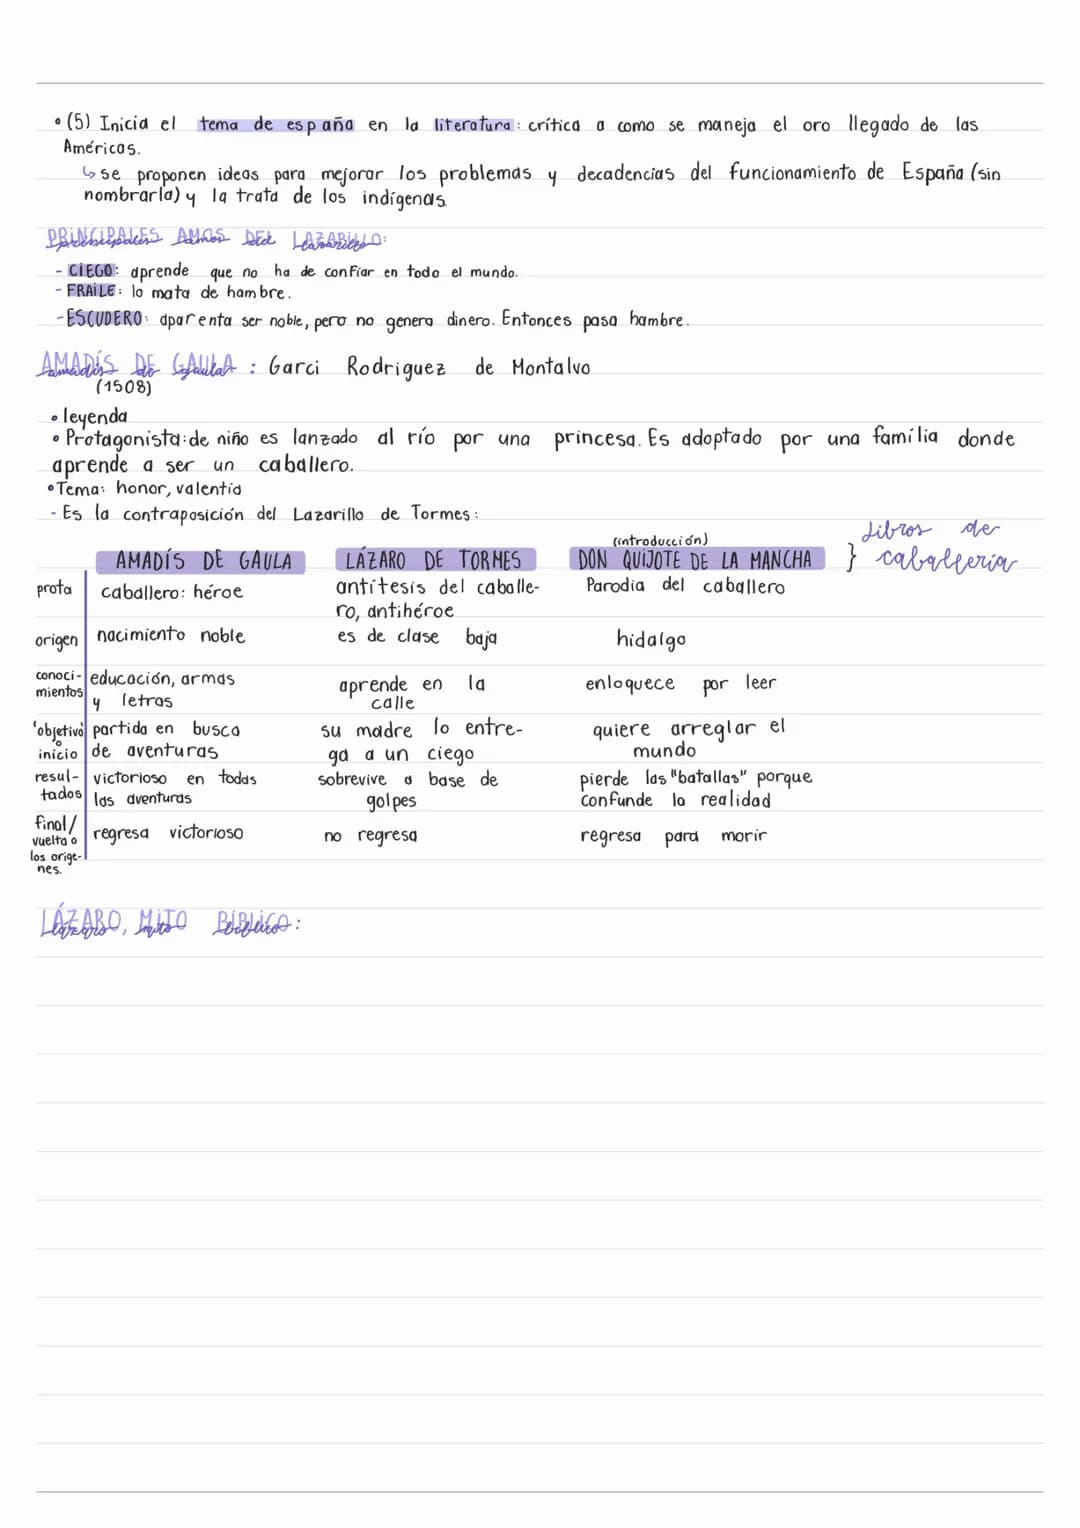 • (5) Inicia el tema de españa en la literatura: crítica a como se maneja el oro llegado de las
Américas.
↳ se proponen ideas para mejorar los problemas y decadencias del funcionamiento de España (sin
nombrarla) y la trata de los indígenas
PRINCIPALES AMOS DEL LAZARILLO:
- CIEGO: aprende que no ha de confiar en todo el mundo.
- FRAILE: lo mata de hambre.
- ESCUDERO: aparenta ser noble, pero no genera dinero. Entonces pasa hambre.
AMADÍS DE GAULA: Garci Rodriguez de Montalvo
(1508)
• leyenda
• Protagonista: de niño es lanzado al río por una princesa. Es adoptado por una família donde
aprende a ser un caballero.
• Tema: honor, valentía
- Es la contraposición del Lazarillo de Tormes:
(introducción)
AMADÍS DE GAULA LÁZARO DE TORMES DON QUIJOTE DE LA MANCHA } Libros de
caballería
prota caballero: héroe antítesis del caballe- Parodia del caballero
ro, antihéroe
origen nacimiento noble es de clase baja hidalgo
conoci- educación, armas aprende en la enloquece por leer
mientos y letras calle
'objetivo' partida en busca su madre lo entre- quiere arreglar el
o inicio de aventuras ga a un ciego mundo
resul- victorioso en todas sobrevive a base de pierde las "batallas" porque
tados las aventuras golpes confunde la realidad
final/ regresa victorioso no regresa regresa para morir
vuelta a
los oríge-
nes.
LÁZARO, MITO BÍBLICO: